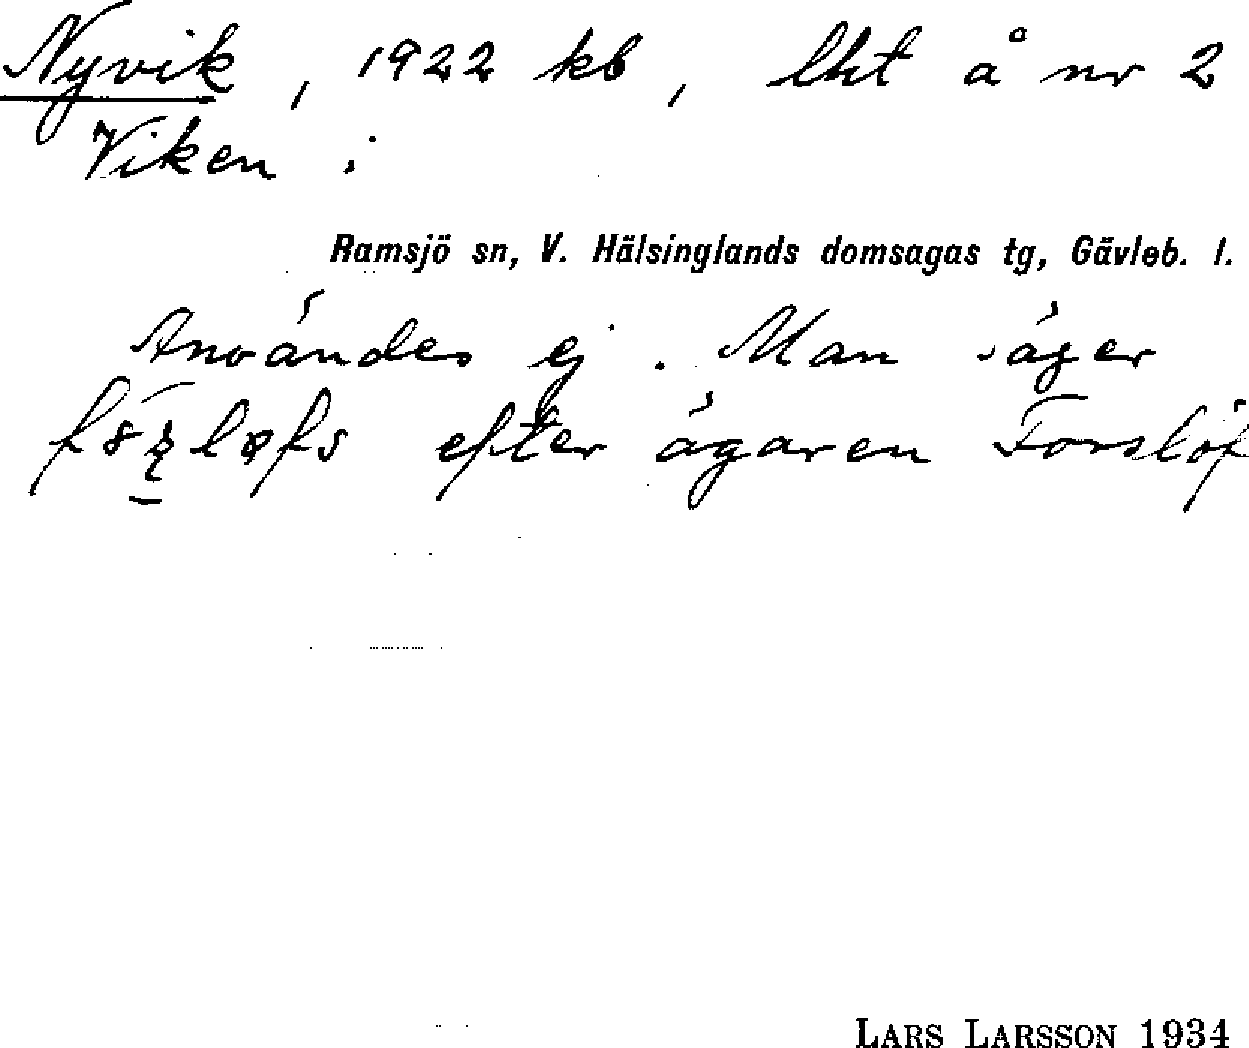 Nyvik, 1922 kb, lht å nr 2
Viken i
Ramsjö sn, V. Hälsinglands domsagas tg, Gävleb. l.
Användes ej. Man säger
efter ägaren Forslöf
LARS LARSSON 1934